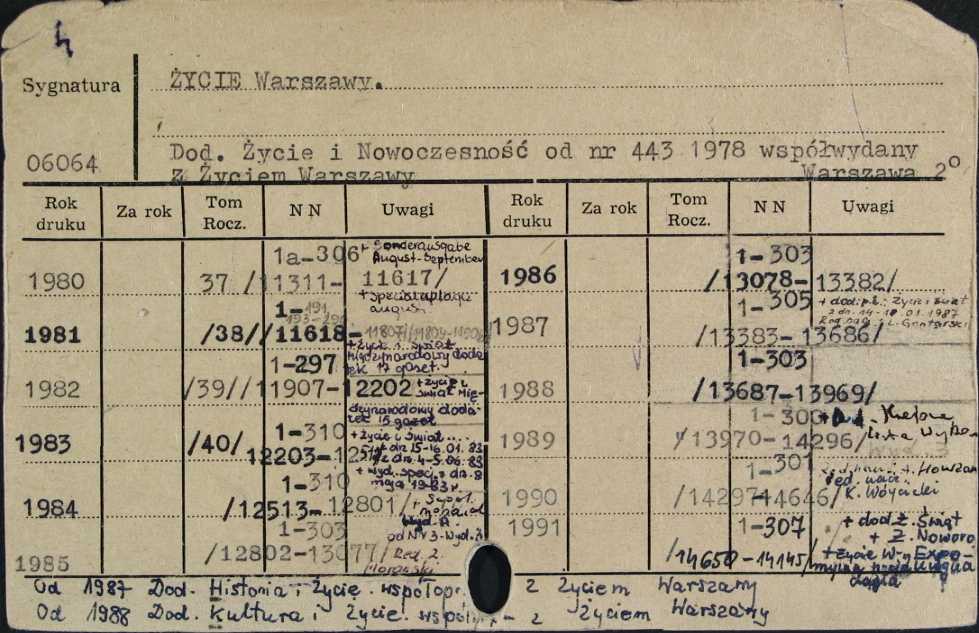 Sygnatura
ŻYCIE Warszawy.
06064
Dod. Życie i Nowoczesność od nr 443 1978 współwydany
z Życiem Warszawy Warszawa 2°
Rok druku Za rok Tom Rocz. N N Uwagi Rok druku Za rok Tom Rocz. N N Uwagi
1a-306 + Sonderausgabe
August-September
1980 37 /11311- 11617/
+ specialaplage
august
1-191
193-296
1981 /38// 11618-
+ Życie i świat
międzynarodowy doda
tek 17 gazet.
1-297
1982 /39// 11907-12202 + życie i
świat mię-
dzynarodowy doda-
tek 15 gazet
1-310 + życie i świat...
1983 /40/ 12203-
dn 15-16.01.83
dn. 4-5.06.83
+ wyd. spec. z dn. 8
maja 1983 r.
1-310
1984 /12513- 12801/
Wyd. A
od Nr 3-Wyd. 2
1-303
1985 /12802-13077/ Red. 2.
1-303
1986 /13078-13382/
1-305 + dod. pt.: Życie i świat
z dn. 14-18.01.1987
1987 /13383-13686/
1-303
1988 /13687-13969/
1-300
1989 /13970-14296/
1-301
1990 /14297-14646/ K. Wóycicki
1991 1-307 + dod. Ż. Świat
+ Ż. Noworo
/14650-14145/ + życie W-y Expo-
Od 1987 Dod. Historia i Życie. współopr. z Życiem Warszawy
Od 1988 Dod. Kultura i Życie. współ - z Życiem Warszawy